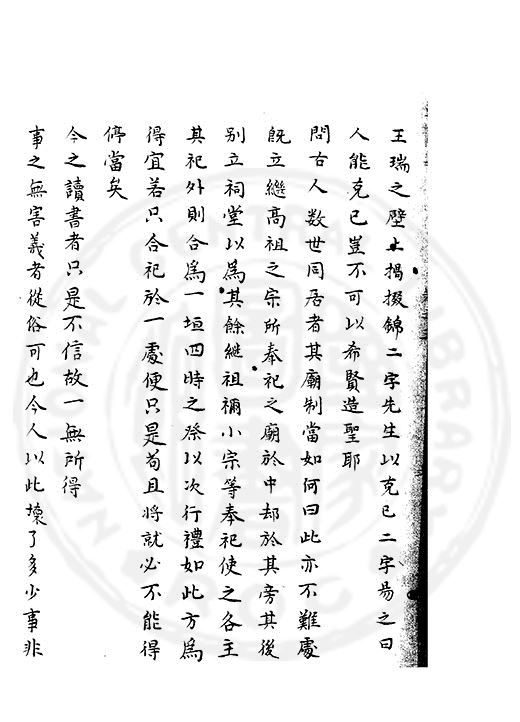 王瑞之壁上揭掇錦二字先生以克己二字易之曰
人能克已豈不可以希賢造聖耶
問古人數世同居者其廟制當如何曰此亦不難處
既立繼高祖之宗所奉祀之廟於中却於其旁其後
别立祠堂以爲其餘繼祖禰小宗等奉祀使之各主
其祀外則合爲一垣四時之祭以次行禮如此方爲
得宜若只合祀於一處便只是苟且將就必不能得
停當矣
今之讀書者只是不信故一無所得
事之無害義者從俗可也今人以此壊了多少事非